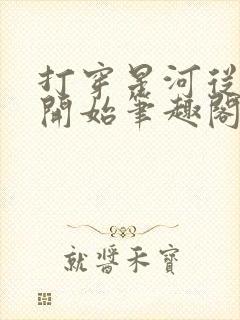 打穿星河從
開始筆趣閣
就醬禾寶